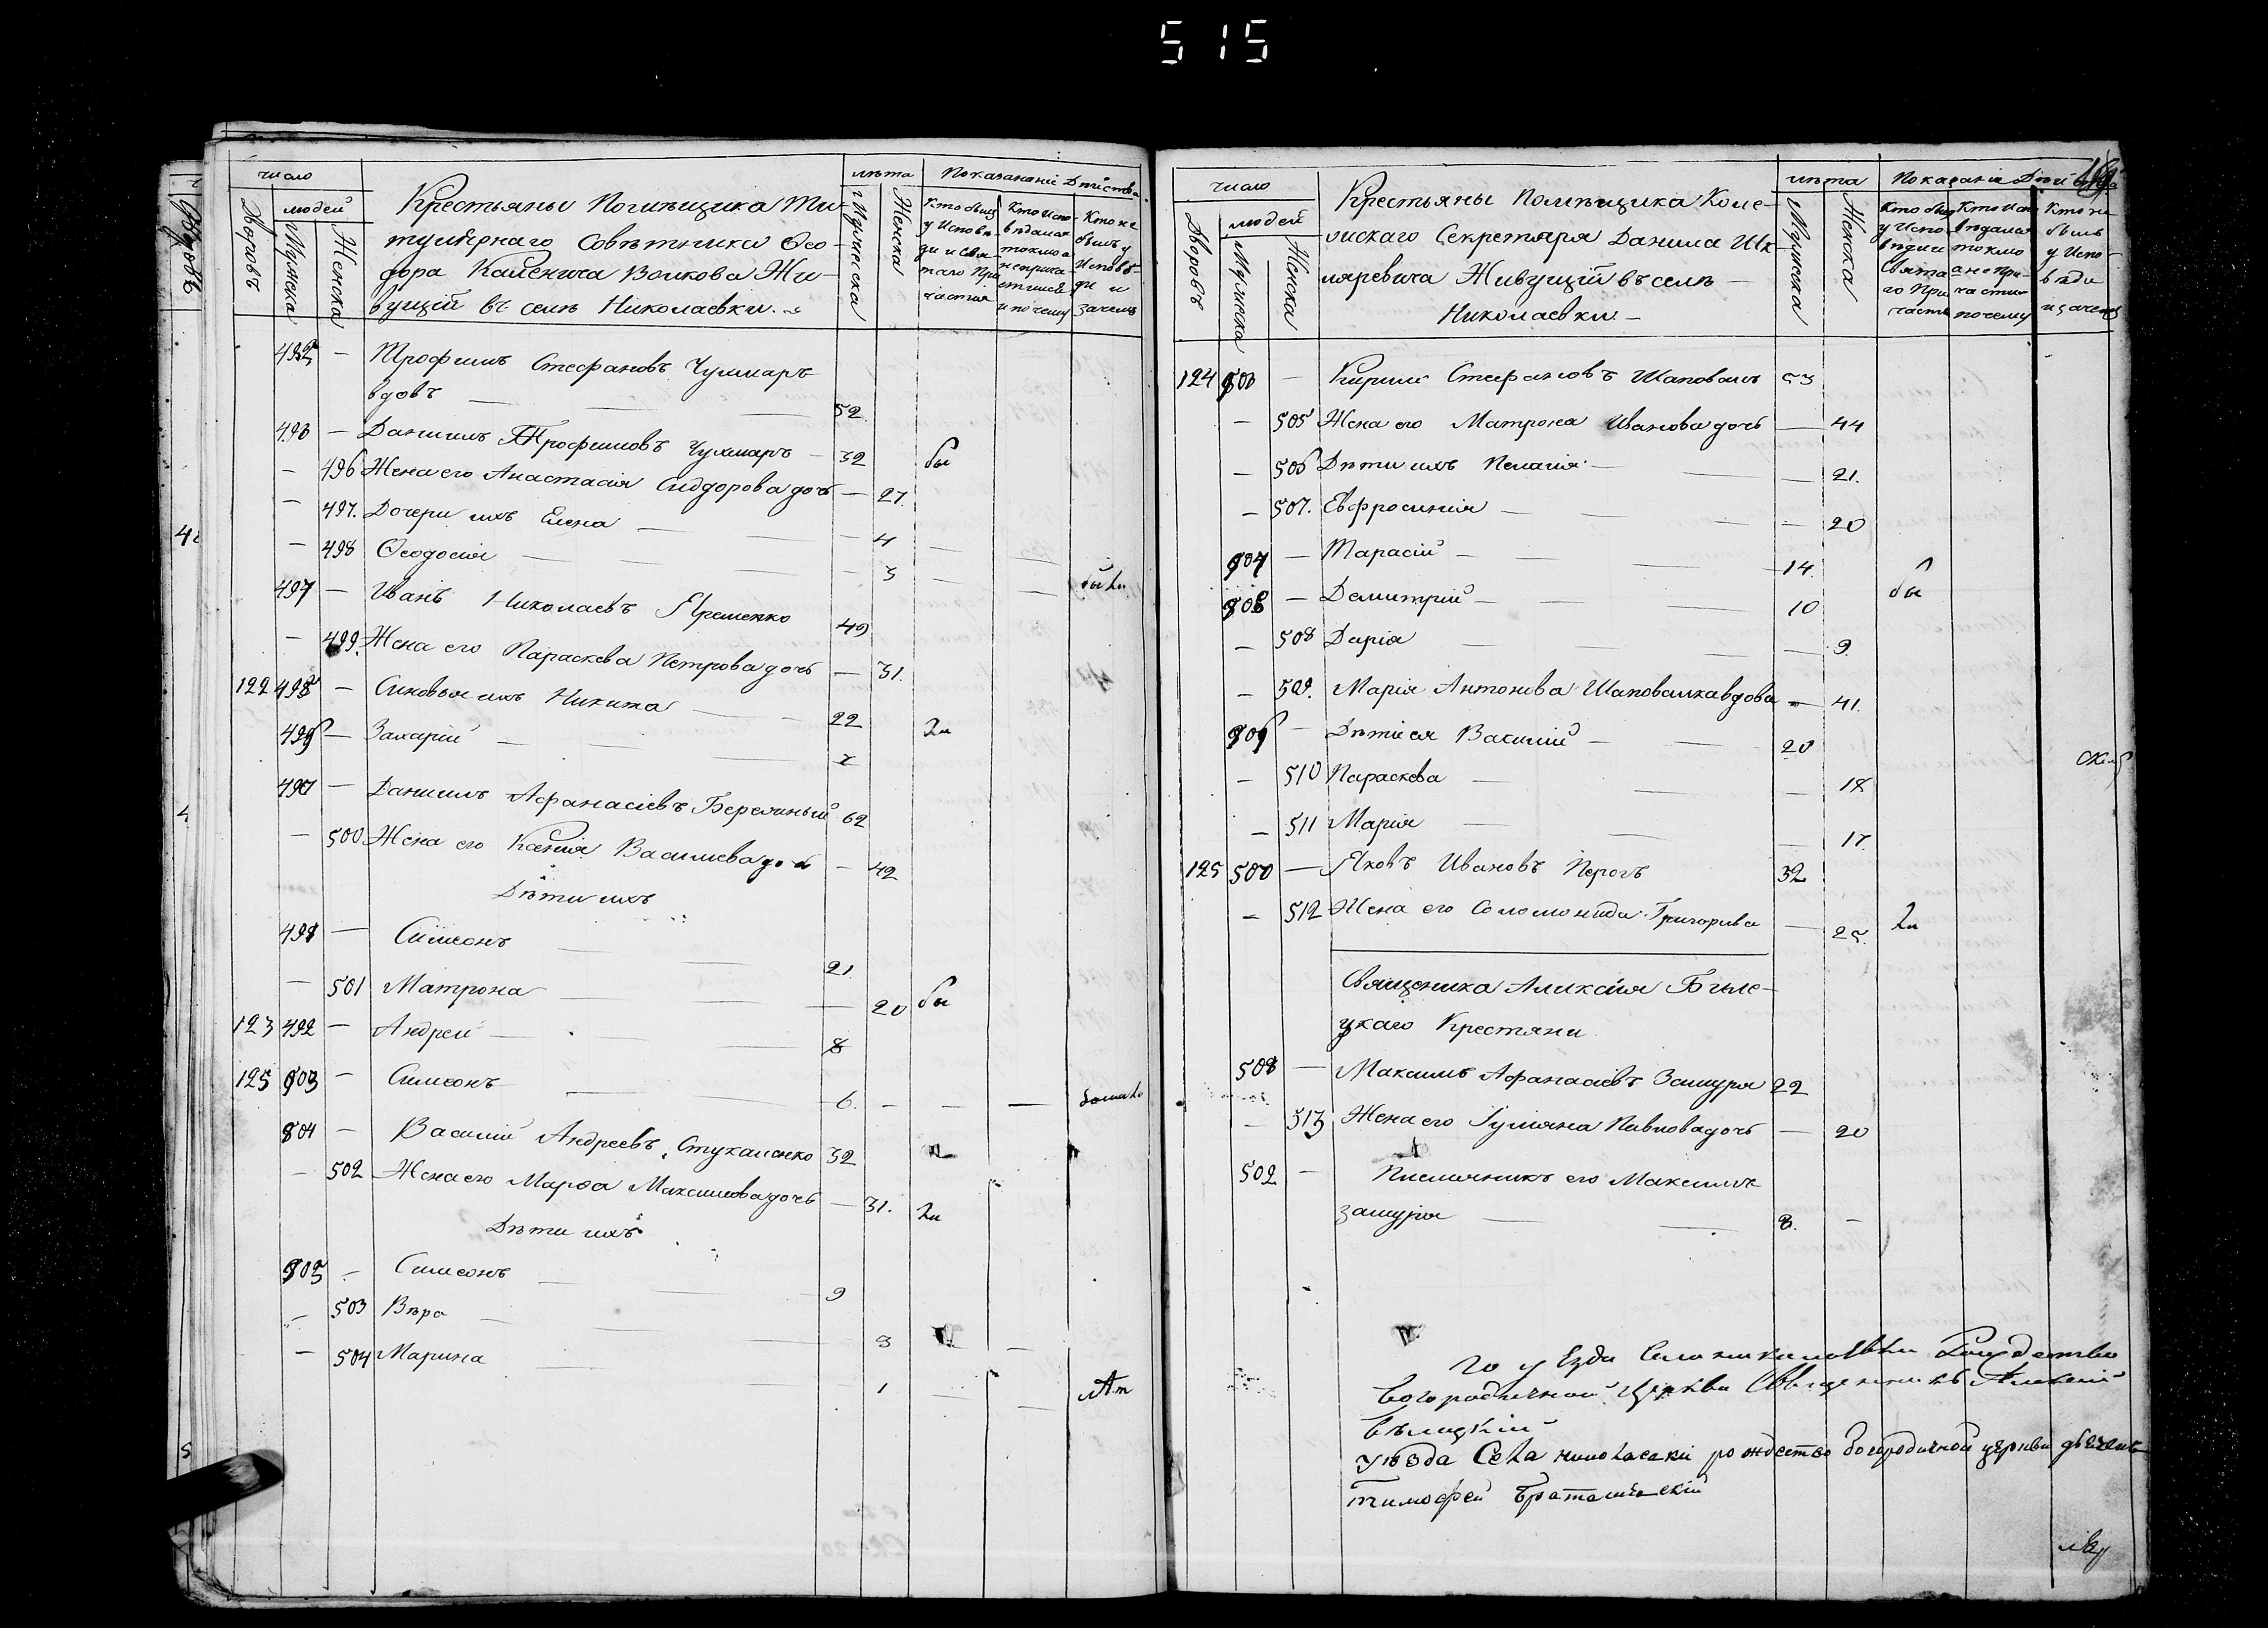 515
число
лѣта
Показаніе Дѣйства
Дворовъ
людей
Мужеска
Женска
Крестьяны Помѣщика Ти-
тулярнаго Совѣтника Ѳео-
дора Волкова Жи-
вущій въ селѣ Николаевки.
Мужеска
Женска
Кто былъ
у Исповѣ-
ди и Свя-
таго При
частія
Кто испо-
вѣдался
токмо а
не прича-
стился
и по чему
Кто не
былъ у
Исповѣ-
ди и
зачемъ
— Трофимъ Стефановъ Чухмаръ
вдовъ — — — 52
493 — Даніилъ Трофимовъ Чухмаръ — 32
— 496 Жена его Анастасія Сидорова дочь — 27.
— 497. Дочери ихъ Елена — — 4
— 498 Ѳеодосія — — — 3
— Иванъ Николаевъ Яременко 49
— 499. Жена его Параскева Петрова дочь — 31.
122 — Синовья ихъ Никита — — 22
— Захарій — —
— Даніилъ Афанасіевъ 62
— 500 Жена его Ксенія Василіева дочь — 42
Дѣти ихъ
— Симеонъ — — 21
— 501 Матрона — — 20
123 492 — Андрей — — 8
125 — Симеонъ — — 6. — — —
— Василій Андреевъ Стукаленко 32
— 502 Жена его Марѳа Максимова дочь — 31.
Дѣти ихъ
— Симеонъ — — 9
— 503 Вѣра — — 3
— 504 Марина — — 1 — —
число
лѣта
Показанія
Дворовъ
людей
Мужеска
Женска
Крестьяны Помѣщика Коле-
жскаго Секретаря Данила Шк
ляревича Живущій въ селѣ —
Николаевки —
Мужеска
Женска
Кто былъ
у Испо-
вѣди и
Свята-
го При
частія
Кто испо
вѣдался
токмо
а не при-
части-
почему
Кто не
былъ
у Испо-
вѣди
и зачемъ
124 — Кирилъ Стефановъ Шаповалъ 53
— 505 Жена его Матрона Иванова дочь — 44
— 506 Дѣти ихъ Пелагія — — 21.
— 507. Евфросинія — — — 20
— Тарасій — — 14.
— Димитрій — — 10
— 508 Дарія — — — 9.
— 509. Марія Антонова Шаповалка вдова — 41.
— Дѣти ея Василій — — 20
— 510 Параскева — — 18
— 511 Марія — — 17.
125 500 — Яковъ Ивановъ Перогъ 32
— 512 Жена его Соломонида Григорева — 25.
Священика Аликсія Биле-
цкаго Крестяни
— Максимъ Афанасіевъ Зашуря 22
— 513 Жена его Іуліяна Павлова дочь — 20
502 — Племянникъ его Максимъ
зашуря — — 8. —
го уезда Села николаевки Рождество
богородичной Церкви Священникъ Алексій
Бѣлецкій
уѣзда Села николаевки рождество богородичной церкви дьячекъ
тимофей